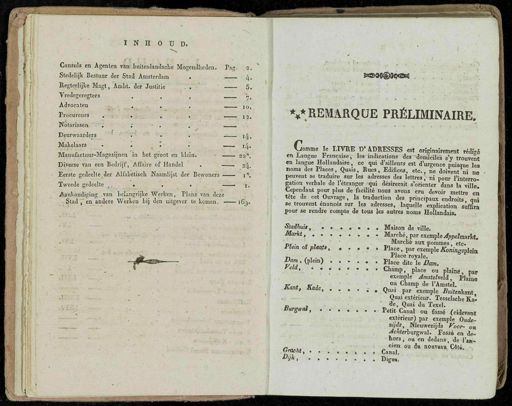 INHOUD.
Consuls en Agenten van buitenlandsche Mogendheden. Pag. 2.
Stedelijk Bestuur der Stad Amsterdam — 4.
Regterlijke Magt, Ambt. der Justitie — 5.
Vrederegters — 7.
Advocaten — 10.
Procureurs — 12.
Notarissen —
Deurwaarders — 14.
Makelaars — 14.
Manufactuur-Magazijnen in het groot en klein. — 22.
Diverse van een Bedrijf, Affaire of Handel — 24.
Eerste gedeelte der Alfabetisch Naamlijst der Bewoners — 1.
Tweede gedeelte — 1.
Aankondiging van belangrijke Werken, Plans van deze
Stad, en andere Werken bij den uitgever te komen. — 163.
REMARQUE PRÉLIMINAIRE.
Comme le LIVRE D'ADRESSES est originairement rédigé
en Langue Francaise, les indications des domiciles s'y trouvent
en langue Hollandaise, ce qui d'ailleurs est d'urgence puisque les
noms des Places, Quais, Rues, Edifices, etc., ne doivent ni ne
peuvent se traduire sur les adresses des lettres, ni pour l'interro-
gation verbale de l'étranger qui désirerait s'orienter dans la ville.
Cependant pour plus de facilité nous avons cru devoir mettre en
tête de cet ouvrage, la traduction des principaux endroits, qui
se trouvent énoncés sur les adresses, laquelle explication suffira
pour se rendre compte de tous les autres noms Hollandais.
Stadhuis, Maison de ville.
Markt, Marché, par exemple Appelmarkt.
Marché aux pommes, etc.
Plein of plaats, Place, par exemple Koningsplein
Place royale.
Dam, (plein) Place dite le Dam.
Veld, Champ, place ou plaine, par
exemple Amstelveld, Plaine
ou Champ de l'Amstel.
Kant, Kade, Quai par exemple Buitenkant,
Quai extérieur. Tesselsche Ka-
de, Quai du Texel.
Burgwal, Petit Canal ou fossé (cidevant
extérieur) par exemple Oude-
zijds, Nieuwezijds Voor- ou
Achterburgwal. Fossé en de-
hors, ou en dedans, de l'an-
cien ou du nouveau Côté.
Gracht, Canal.
Dijk, Digue.